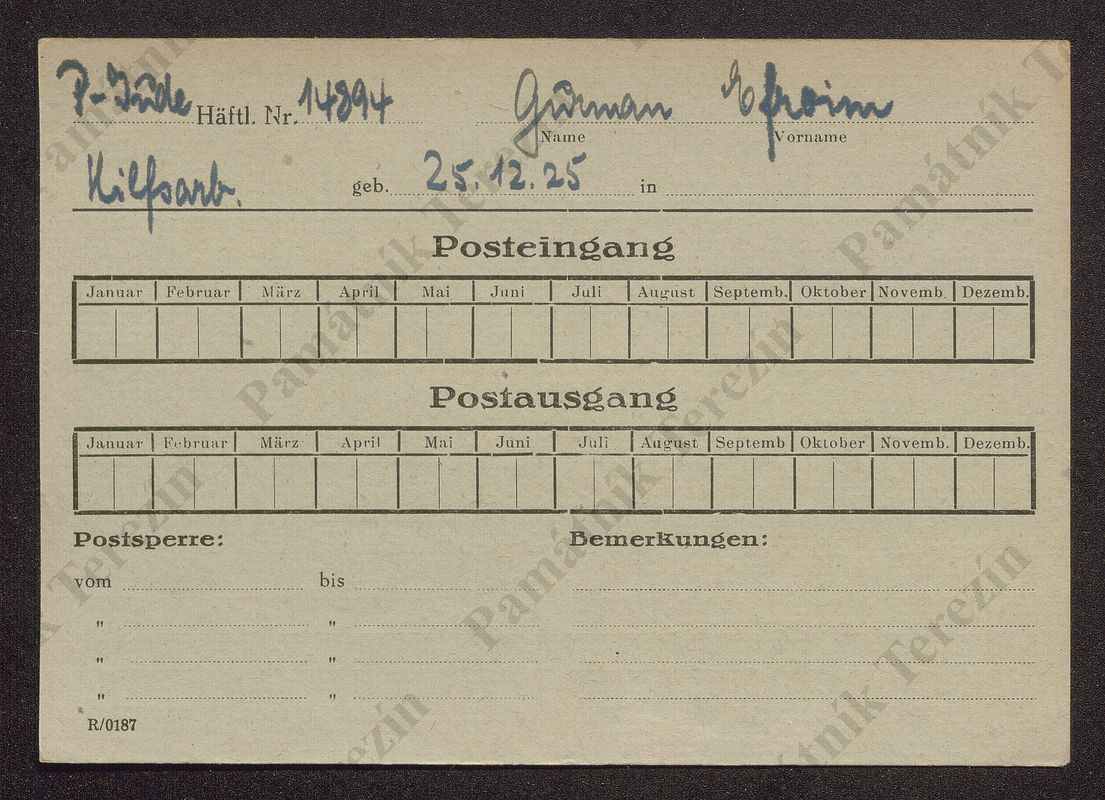 P-Jude Häftl. Nr. 14894 Gurman Efroim
Name Vorname
Hilfsarb. geb. 25.12.25 in
Posteingang
Januar Februar März April Mai Juni Juli August Septemb. Oktober Novemb. Dezemb.
Postausgang
Januar Februar März April Mai Juni Juli August Septemb Oktober Novemb. Dezemb.
Postsperre: Bemerkungen:
vom bis
" "
" "
" "
R/0187
Památník Terezín